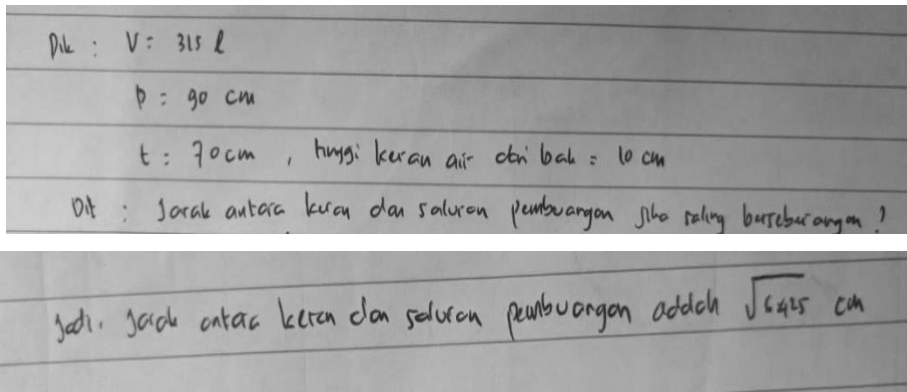 Dik : V = 315 l
p = 90 cm
t = 70 cm , tinggi keran air dari bak = 10 cm
Dit : Jarak antara keran dan saluran pembuangan jika saling berseberangan ?
Jadi. jarak antara keran dan saluran pembuangan adalah √6425 cm